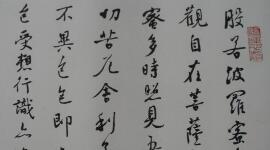 般若波羅蜜
觀自在菩薩
蜜多時照見五
切苦厄舍利
不異色色即
色受想行識亦